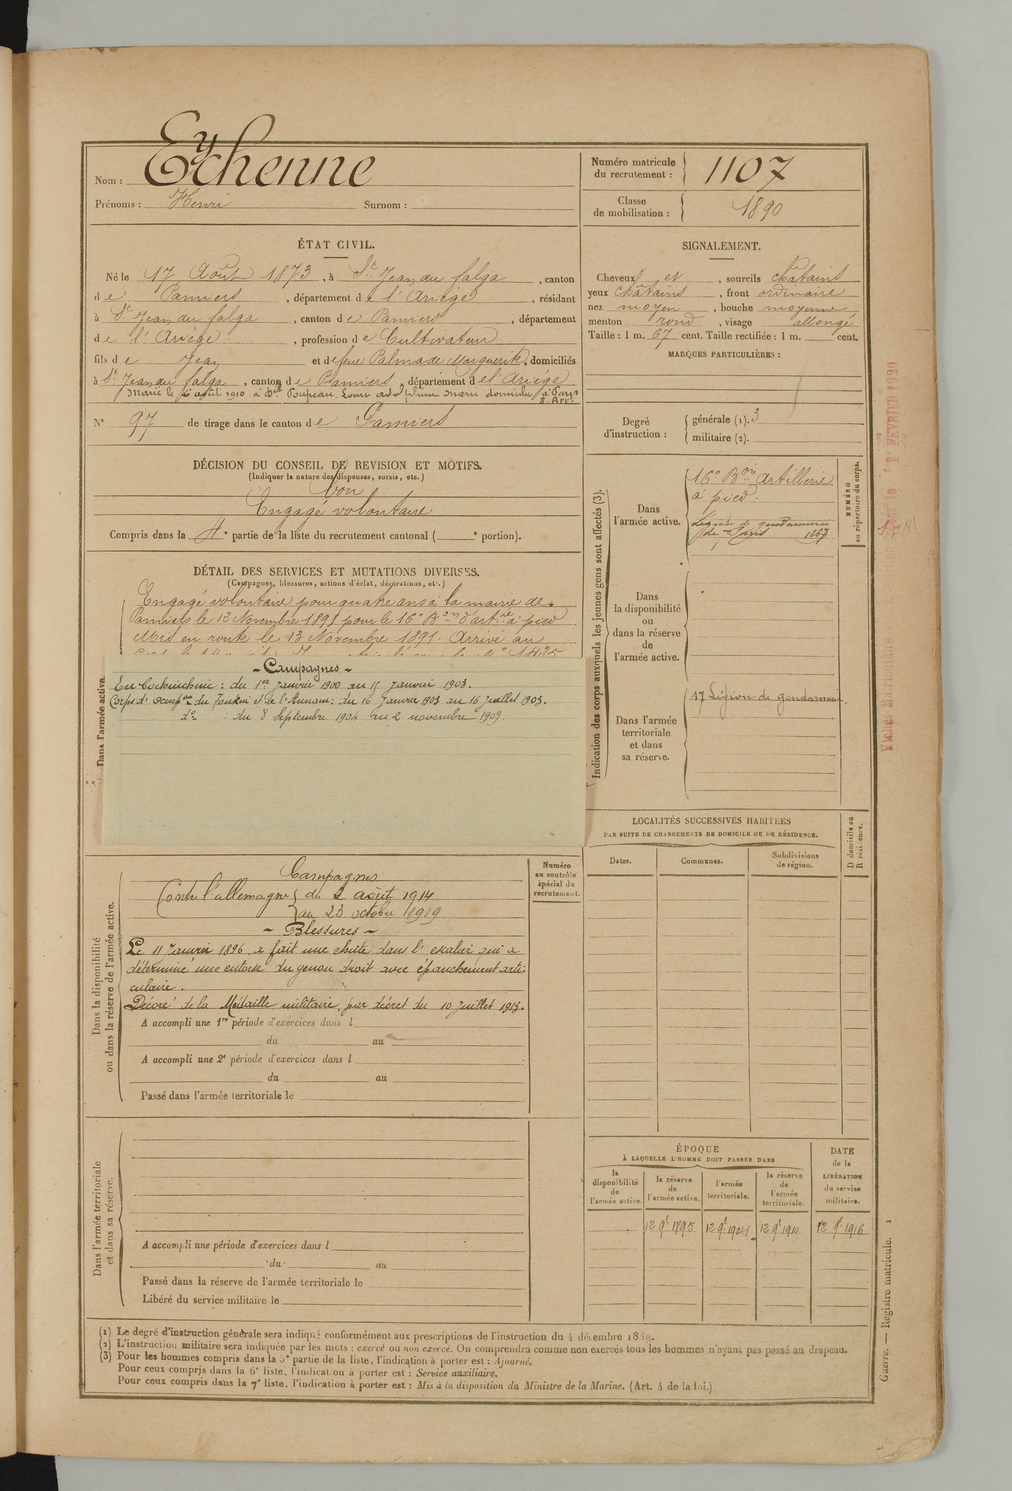 Nom : Eychenne
Prénoms : Henri Surnom :
Numéro matricule du recrutement : 1107
Classe de mobilisation : 1890
ÉTAT CIVIL.
Né le 17 Août 1873, à St Jean du falga, canton
de Pamiers, département de l'Ariège, résidant
à St Jean du falga, canton de Pamiers, département
de l'Ariège, profession de Cultivateur
fils de Jean et de feue Palmade Marguerite, domiciliés
à St Jean du falga, canton de Pamiers, département de l'Ariège
Marié le 6 août 1910 à Dlle domicilié à Paris
8e Arrt
N° 97 de tirage dans le canton de Pamiers
SIGNALEMENT.
Cheveux et, sourcils châtains
yeux châtains, front ordinaire
nez moyen, bouche moyenne
menton rond, visage allongé
Taille : 1 m. 67 cent. Taille rectifiée : 1 m. cent.
MARQUES PARTICULIÈRES :
Degré d'instruction :
générale (1). 3
militaire (2).
DÉCISION DU CONSEIL DE REVISION ET MOTIFS.
(Indiquer la nature des dispenses, sursis, etc.)
bon
Engagé volontaire
Compris dans la 4e partie de la liste du recrutement cantonal ( e portion).
DÉTAIL DES SERVICES ET MUTATIONS DIVERSES.
(Campagnes, blessures, actions d'éclat, décorations, etc.)
Engagé volontaire pour quatre ans à la mairie de
Pamiers le 12 Novembre 1891 pour le 16e Bon d'artrie à pied
Mis en route le 13 Novembre 1891. Arrivé au
- Campagnes -
En Cochinchine : du 1er Janvier 1900 au 15 Janvier 1903.
Corps d'occupon du Tonkin et de l'Annam : du 16 Janvier 1903 au 16 juillet 1903.
do : du 8 Septembre 1904 au 2 novembre 1909.
Dans l'armée active.
Indication des corps auxquels les jeunes gens sont affectés (3).
NUMÉRO au répertoire du corps.
Dans l'armée active.
16e Bon Artillerie
à pied.
Légion de gendarmerie
de Paris 1267
Dans la disponibilité ou dans la réserve de l'armée active.
Dans l'armée territoriale et dans sa réserve.
17 Légion de gendarmerie
LOCALITÉS SUCCESSIVES HABITÉES
PAR SUITE DE CHANGEMENTS DE DOMICILE OU DE RÉSIDENCE.
Dates. Communes. Subdivisions de région. D domicile ou R résidence.
Dans la disponibilité ou dans la réserve de l'armée active.
Numéro au contrôle spécial du recrutement.
Campagnes
Contre l'allemagne du 2 août 1914
au 23 octobre 1919
- Blessures -
Le 11 Janvier 1896, a fait une chute dans l'escalier qui a
déterminé une entorse du genou droit avec épanchement arti-
culaire.
Décoré de la Médaille militaire, par décret du 10 juillet 1913.
A accompli une 1re période d'exercices dans l
du au
A accompli une 2e période d'exercices dans l
du au
Passé dans l'armée territoriale le
Dans l'armée territoriale et dans sa réserve.
A accompli une période d'exercices dans l
du au
Passé dans la réserve de l'armée territoriale le
Libéré du service militaire le
ÉPOQUE
À LAQUELLE L'HOMME DOIT PASSER DANS
la disponibilité de l'armée active.
la réserve de l'armée active.
l'armée territoriale.
la réserve de l'armée territoriale.
DATE de la LIBÉRATION du service militaire.
12 9bre 1895 12 9bre 1904 12 9bre 1910 12 9bre 1916
(1) Le degré d'instruction générale sera indiqué conformément aux prescriptions de l'instruction du 4 décembre 1889.
(2) L'instruction militaire sera indiquée par les mots : exercé ou non exercé. On comprendra comme non exercés tous les hommes n'ayant pas passé au drapeau.
(3) Pour les hommes compris dans la 5e partie de la liste, l'indication à porter est : Ajourné.
Pour ceux compris dans la 6e liste, l'indication à porter est : Service auxiliaire.
Pour ceux compris dans la 7e liste, l'indication à porter est : Mis à la disposition du Ministre de la Marine. (Art. 4 de la loi.)
Guerre. — Registre matricule. 1
FÉVRIER 1920